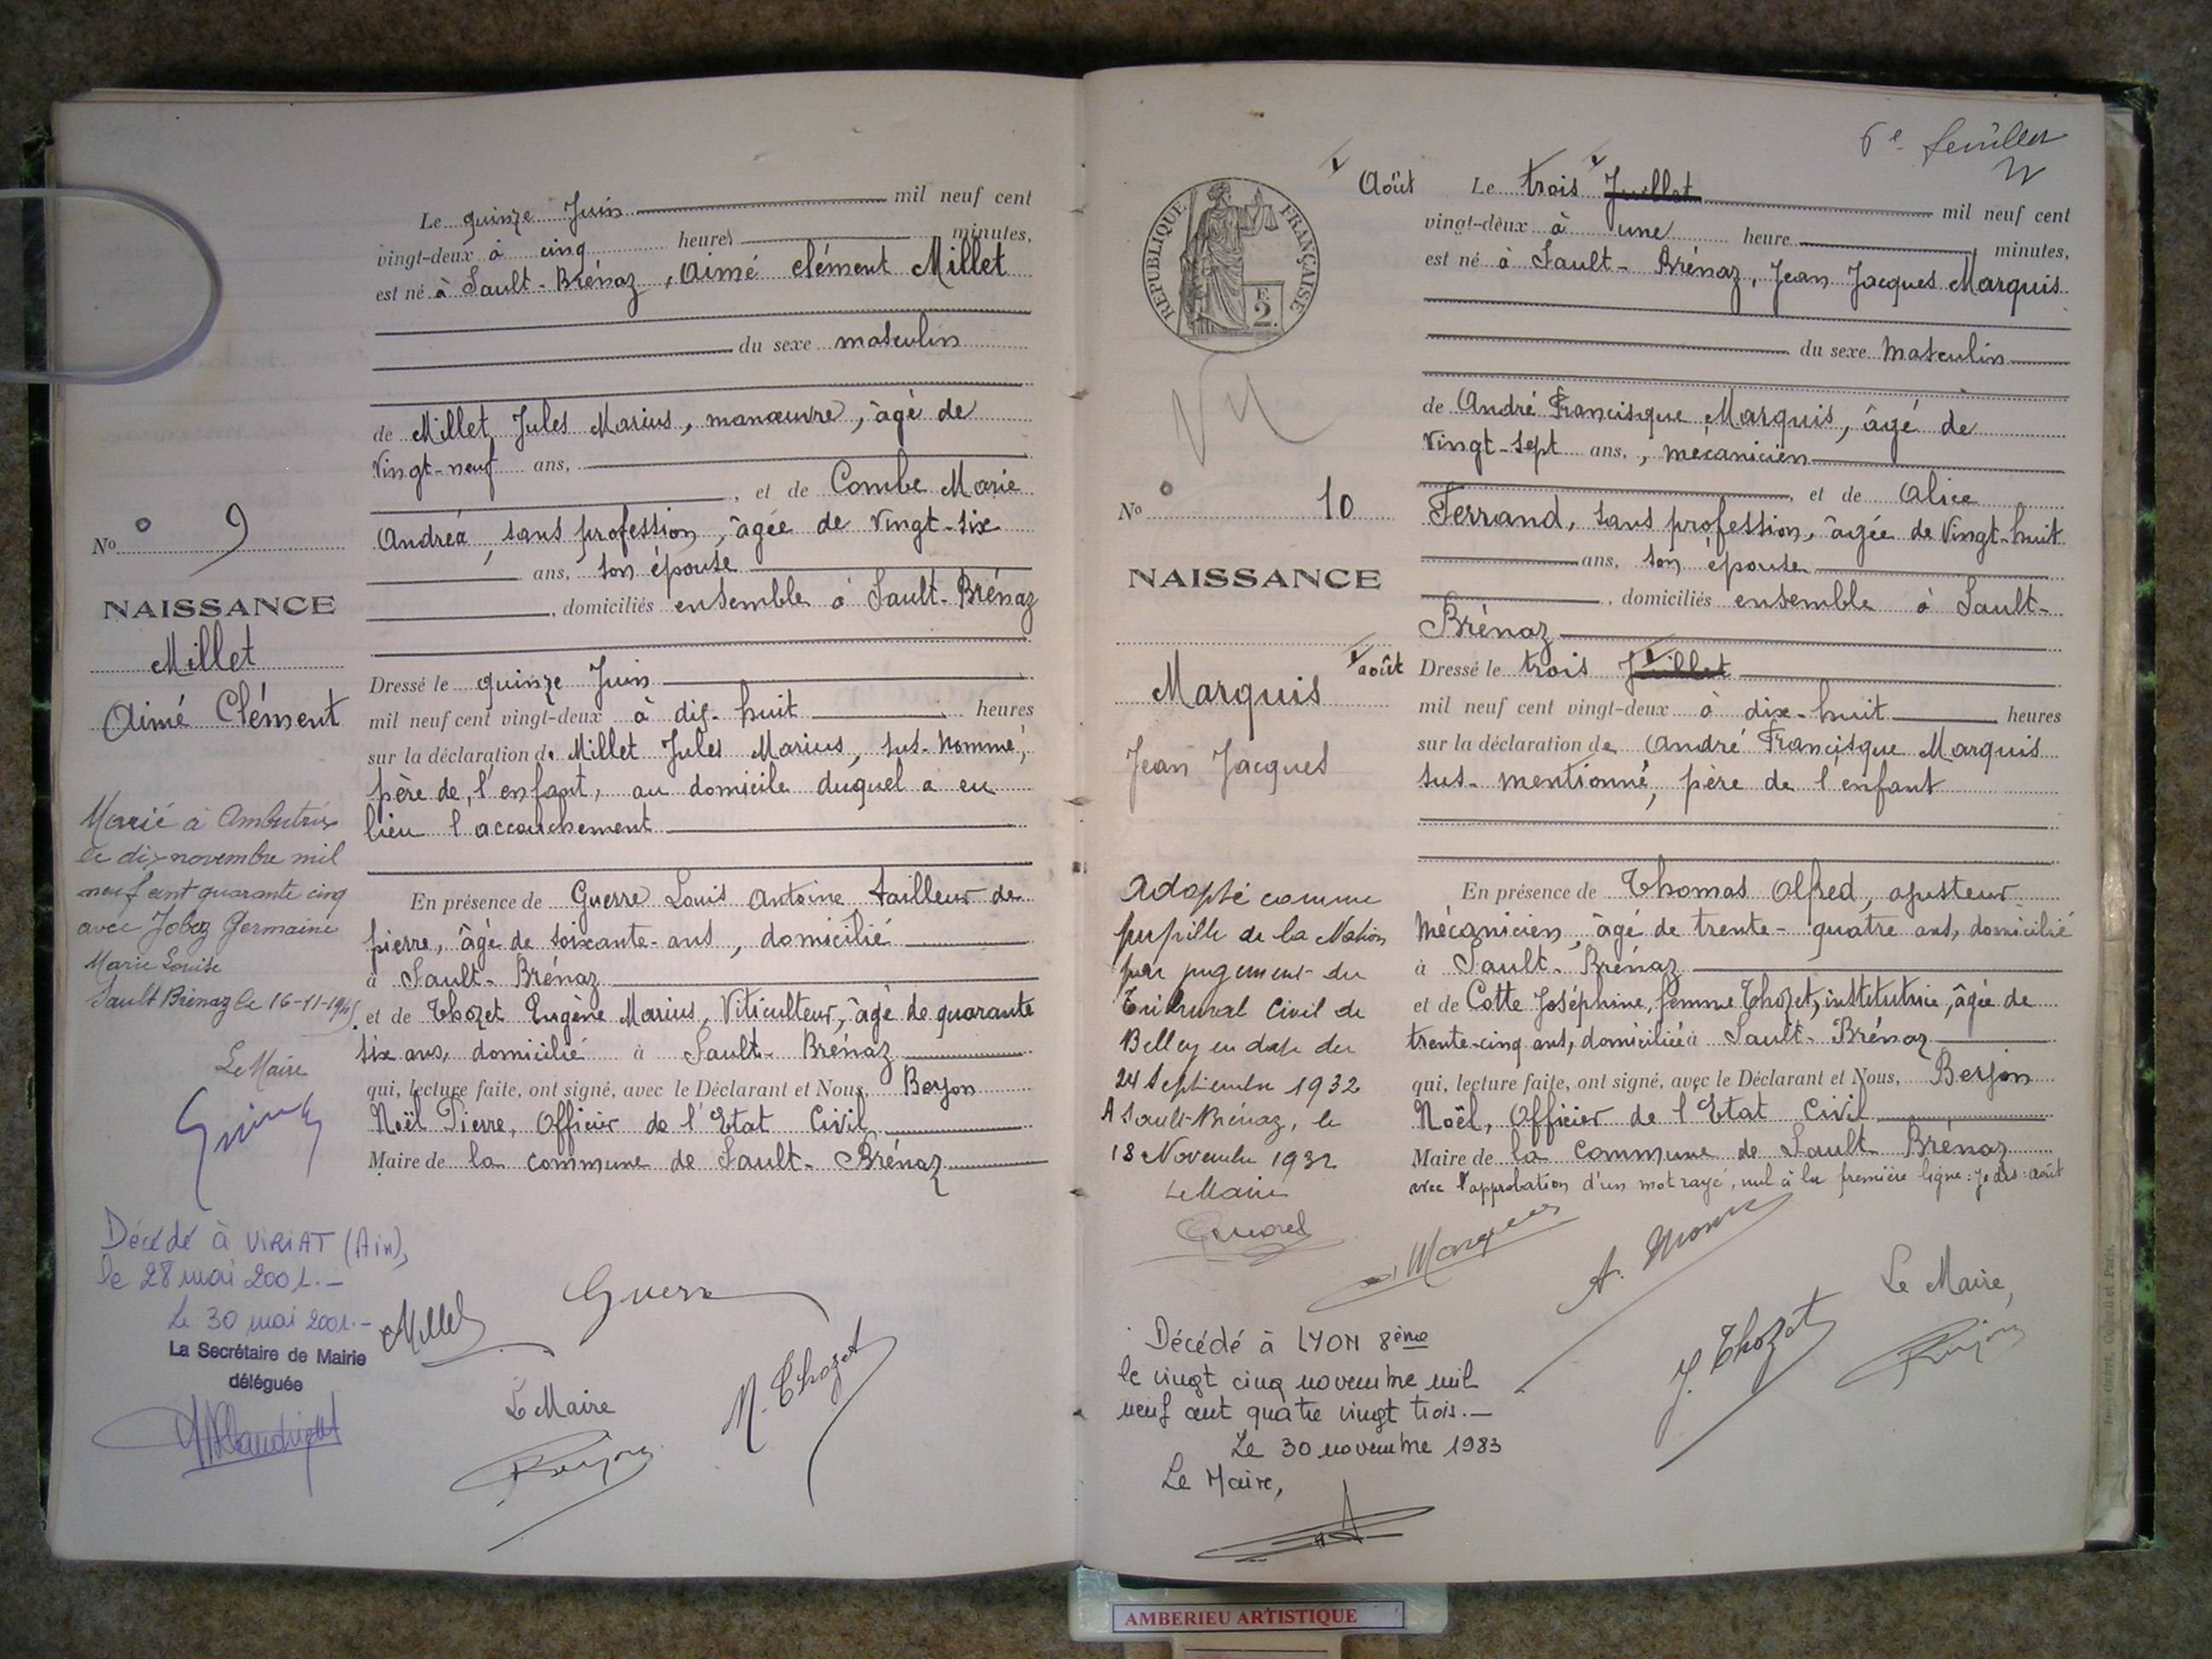 Le quinze Juin mil neuf cent
vingt-deux à cinq heures minutes,
est né à Sault-Brénaz, Aimé Clément Millet
du sexe masculin
de Millet Jules Marius, manœuvre, âgé de
vingt-neuf ans,
, et de Combe Marie
Andréa, sans profession, âgée de vingt-six
ans, son épouse
, domiciliés ensemble à Sault-Brénaz
Dressé le quinze Juin
mil neuf cent vingt-deux à dix-huit heures
sur la déclaration de Millet Jules Marius, sus-nommé,
père de l'enfant, au domicile duquel a eu
lieu l'accouchement
En présence de Guerre Louis Antoine tailleur de
pierre, âgé de soixante-ans, domicilié
à Sault-Brénaz
et de Thozet Eugène Marius, Viticulteur, âgé de quarante
six ans, domicilié à Sault-Brénaz
qui, lecture faite, ont signé, avec le Déclarant et Nous, Berjon
Noël Pierre, Officier de l'Etat Civil
Maire de la commune de Sault-Brénaz
Millet
Guerre
Le Maire
M. Thozet
No 9
NAISSANCE
Millet
Aimé Clément
Marié à Ambutrix
le dix novembre mil
neuf cent quarante cinq
avec Joboz Germaine
Marie Louise
Sault Brénaz le 16-11-1945.
Le Maire
Décédé à VIRIAT (Ain),
le 28 mai 2001.-
Le 30 mai 2001.-
La Secrétaire de Mairie
déléguée
6e feuillet
REPUBLIQUE FRANÇAISE
F.
2.
Août Le trois Juillet mil neuf cent
vingt-deux à une heure minutes,
est né à Sault-Brénaz, Jean Jacques Marquis
du sexe masculin
de André Francisque Marquis, âgé de
vingt-sept ans, mécanicien
, et de Alice
Ferrand, sans profession, âgée de vingt-huit
ans, son épouse
, domiciliés ensemble à Sault-
Brénaz
août Dressé le trois Juillet
mil neuf cent vingt-deux à dix-huit heures
sur la déclaration de André Francisque Marquis
sus-mentionné, père de l'enfant
En présence de Thomas Alfred, ajusteur
mécanicien, âgé de trente-quatre ans, domicilié
à Sault-Brénaz
et de Cotte Joséphine, femme Thozet, institutrice, âgée de
trente-cinq ans, domiciliée à Sault-Brénaz
qui, lecture faite, ont signé, avec le Déclarant et Nous, Berjon
Noël, Officier de l'Etat Civil
Maire de la commune de Sault Brénaz
avec l'approbation d'un mot rayé, nul à la première ligne: août
Marquis
Le Maire,
J. Thozet
No 10
NAISSANCE
Marquis
Jean Jacques
Adopté comme
pupille de la Nation
par jugement du
Tribunal Civil de
Belley en date du
24 Septembre 1932
A Sault-Brénaz, le
18 Novembre 1932
Le Maire
Décédé à LYON 8ème
le vingt cinq novembre mil
neuf cent quatre vingt trois.-
Le 30 novembre 1983
Le Maire,
AMBERIEU ARTISTIQUE